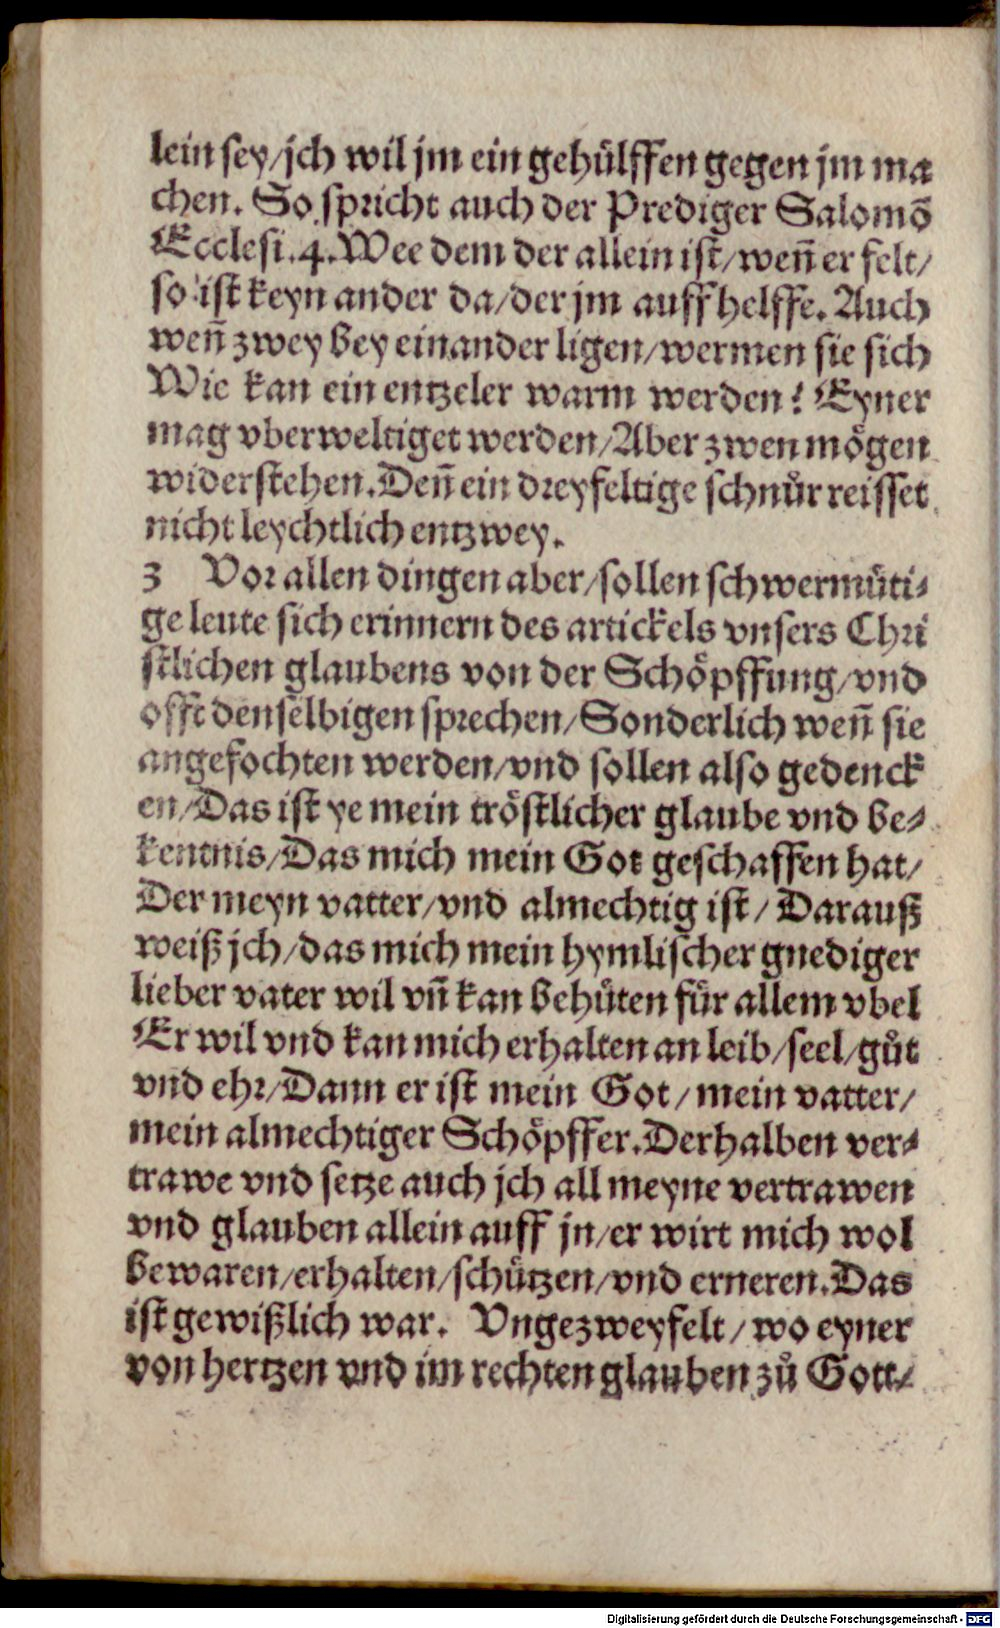 lein sey/jch wil jm ein gehülffen gegen jm ma
chen. So spricht auch der Prediger Salomõ
Ecclesi.4. Wee dem der allein ist/weñ er felt/
so ist keyn ander da/der jm auff helffe. Auch
weñ zwey bey einander ligen/wermen sie sich
Wie kan ein entzeler warm werden? Eyner
mag vberweltiget werden/Aber zwen mögen
widerstehen. Deñ ein dreyfeltige schnůr reisset
nicht leychtlich entzwey.
3 Vor allen dingen aber/sollen schwermüti-
ge leute sich erinnern des artickels vnsers Chri
stlichen glaubens von der Schöpffung/vnd
offt denselbigen sprechen/Sonderlich weñ sie
angefochten werden/vnd sollen also gedenck
en/Das ist ye mein tröstlicher glaube vnd be-
kentnis/Das mich mein Got geschaffen hat/
Der meyn vatter/vnd almechtig ist/Darauß
weiß jch/das mich mein hymlischer gnediger
lieber vater wil vñ kan behüten für allem vbel
Er wil vnd kan mich erhalten an leib/seel/gůt
vnd ehr/Dann er ist mein Got/mein vatter/
mein almechtiger Schöpffer. Derhalben ver-
trawe vnd setze auch jch all meyne vertrawen
vnd glauben allein auff jn/er wirt mich wol
bewaren/erhalten/schützen/vnd erneren. Das
ist gewißlich war. Vngezweyfelt/wo eyner
von hertzen vnd im rechten glauben zů Gott/
Digitalisierung gefördert durch die Deutsche Forschungsgemeinschaft - DFG